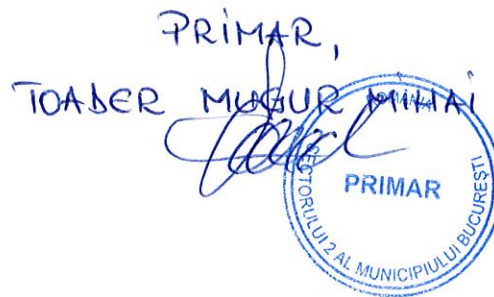 PRIMAR,
TOADER MUGUR MIHAI
ROMÂNIA
PRIMAR
SECTORULUI 2 AL MUNICIPIULUI BUCUREȘTI